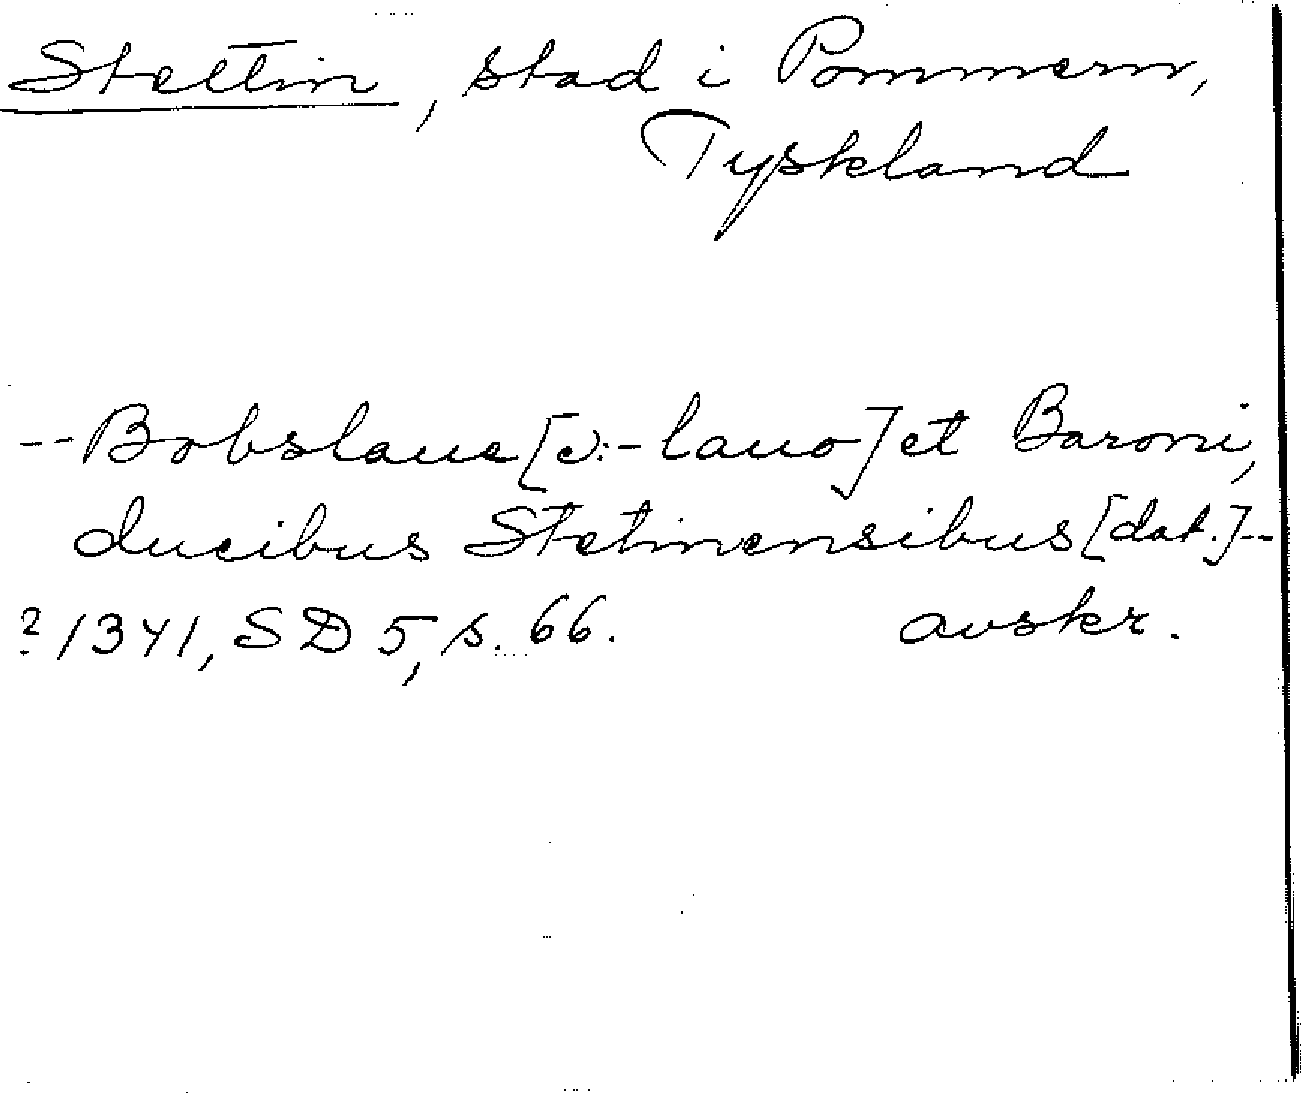 Stettin, stad i Pommern,
Tyskland
-- Bobslaue [ɔ:-lauo] et Baroni,
ducibus Stetinensibus [dat.] --
? 1341, SD 5, s. 66. avskr.